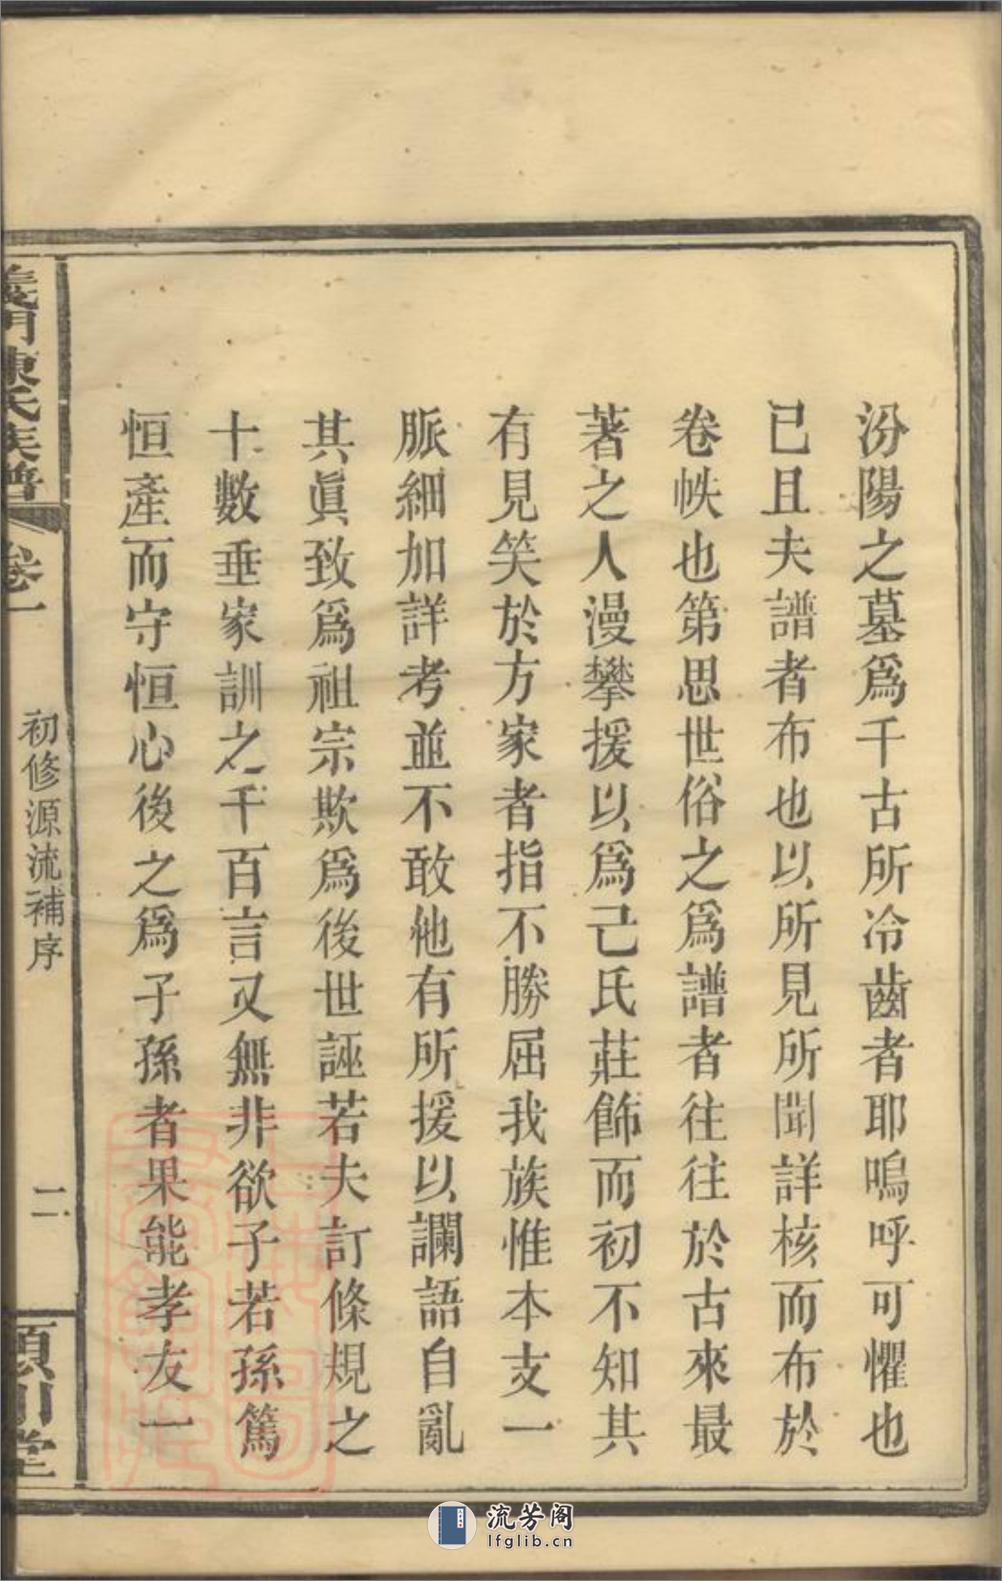 汾陽之墓爲千古所冷齒者耶嗚呼可懼也
已且夫譜者布也以所見所聞詳核而布於
卷帙也第思世俗之爲譜者往往於古來最
著之人漫攀援以爲己氏莊飾而初不知其
有見笑於方家者指不勝屈我族惟本支一
脈細加詳考並不敢他有所援以讕語自亂
其眞致爲祖宗欺爲後世誣若夫訂條規之
十數垂家訓之千百言又無非欲子若孫篤
恒產而守恒心後之爲子孫者果能孝友一
義門陳氏族譜
卷一
初修源流補序
二
潁川堂
流芳阁
lfglib.cn